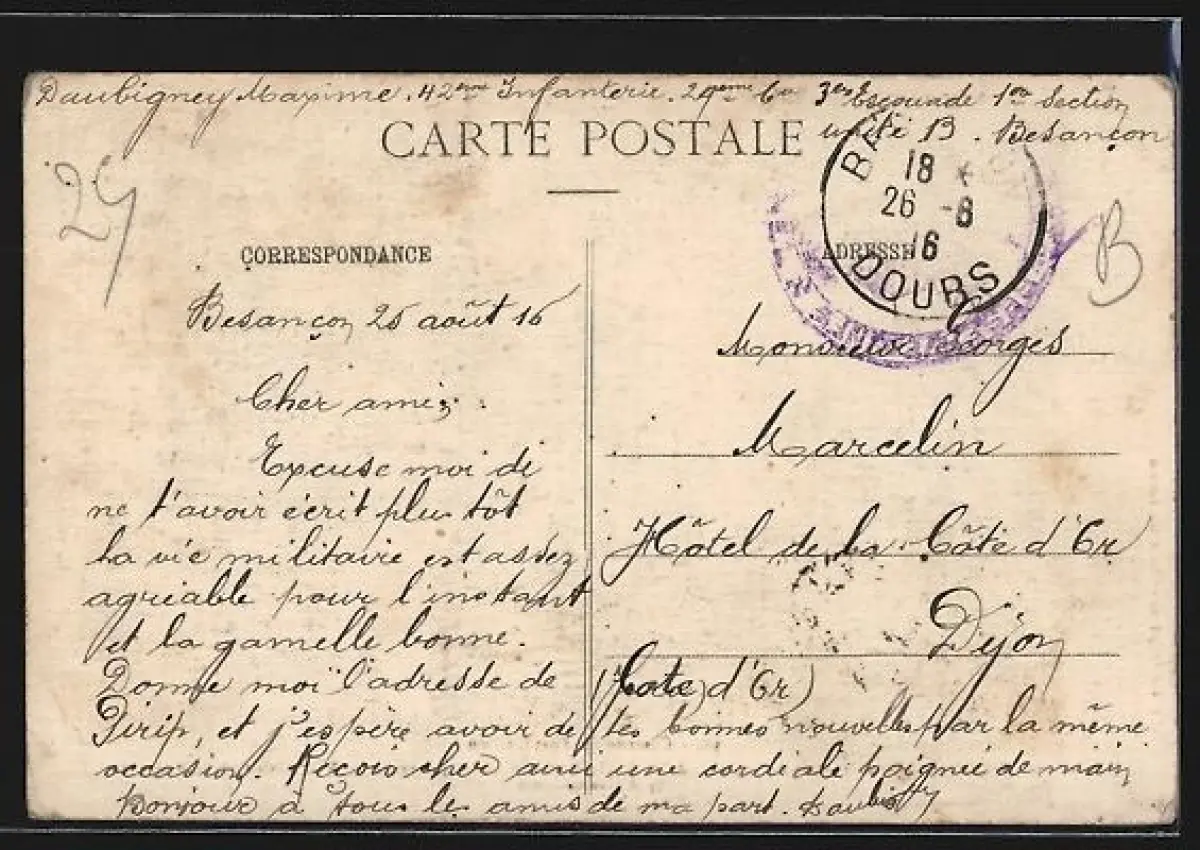 Daubigney Maxime. 42ème Infanterie. 29ème Cie 3e Escouade 1ère Section
unité B. Besançon
CARTE POSTALE
29
B
18
26 -8
16
DOUBS
CORRESPONDANCE
ADRESSE
Besançon 25 août 16
Cher ami
Excuse moi de
ne t'avoir écrit plus tôt
la vie militaire est assez
agréable pour l'instant
et la gamelle bonne.
Donne moi l'adresse de
et j'espère avoir de tes bonnes nouvelles par la même
occasion. Reçois cher ami une cordiale poignée de main
Bonjour à tous les amis de ma part.
Monsieur Georges
Marcelin
Hôtel de la Côte d'Or
Dijon
(Cote d'Or)